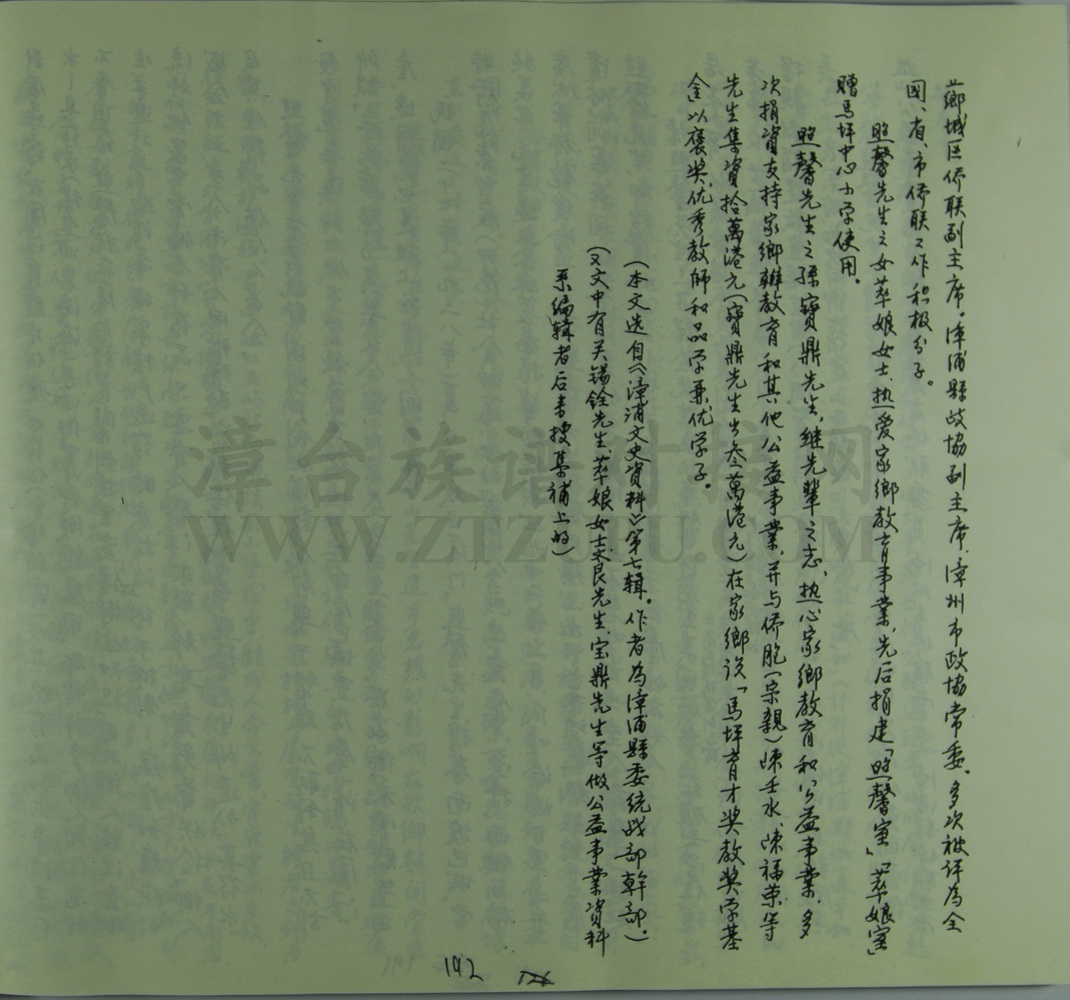 薌城区侨联副主席。漳浦縣政協副主席、漳州市政協常委。多次被评為全
国、省、市侨联工作积极分子。
照馨先生之女萃娘女士、热爱家鄉教育事業、先后捐建「照馨室」「萃娘室」
贈马坪中心小学使用。
照馨先生之孫寶鼎先生、继先輩之志、热心家鄉教育和公益事業、多
次捐資支持家鄉辦教育和其他公益事業、并与侨胞(宗親)陳壬水、陳福荣等
先生集資拾萬港元(寶鼎先生出叁萬港元)在家鄉设「馬坪育才奖教奖学基
金」以褒奖优秀教師和品学兼优学子。
(本文选自《漳浦文史資料》第七辑。作者為漳浦縣委统战部幹部。)
(又文中有关锡銓先生、萃娘女士、良先生、宝鼎先生等做公益事業資料
系编辑者后来搜集補上的)
192
漳台族谱对接网
WWW.ZTZUPU.COM